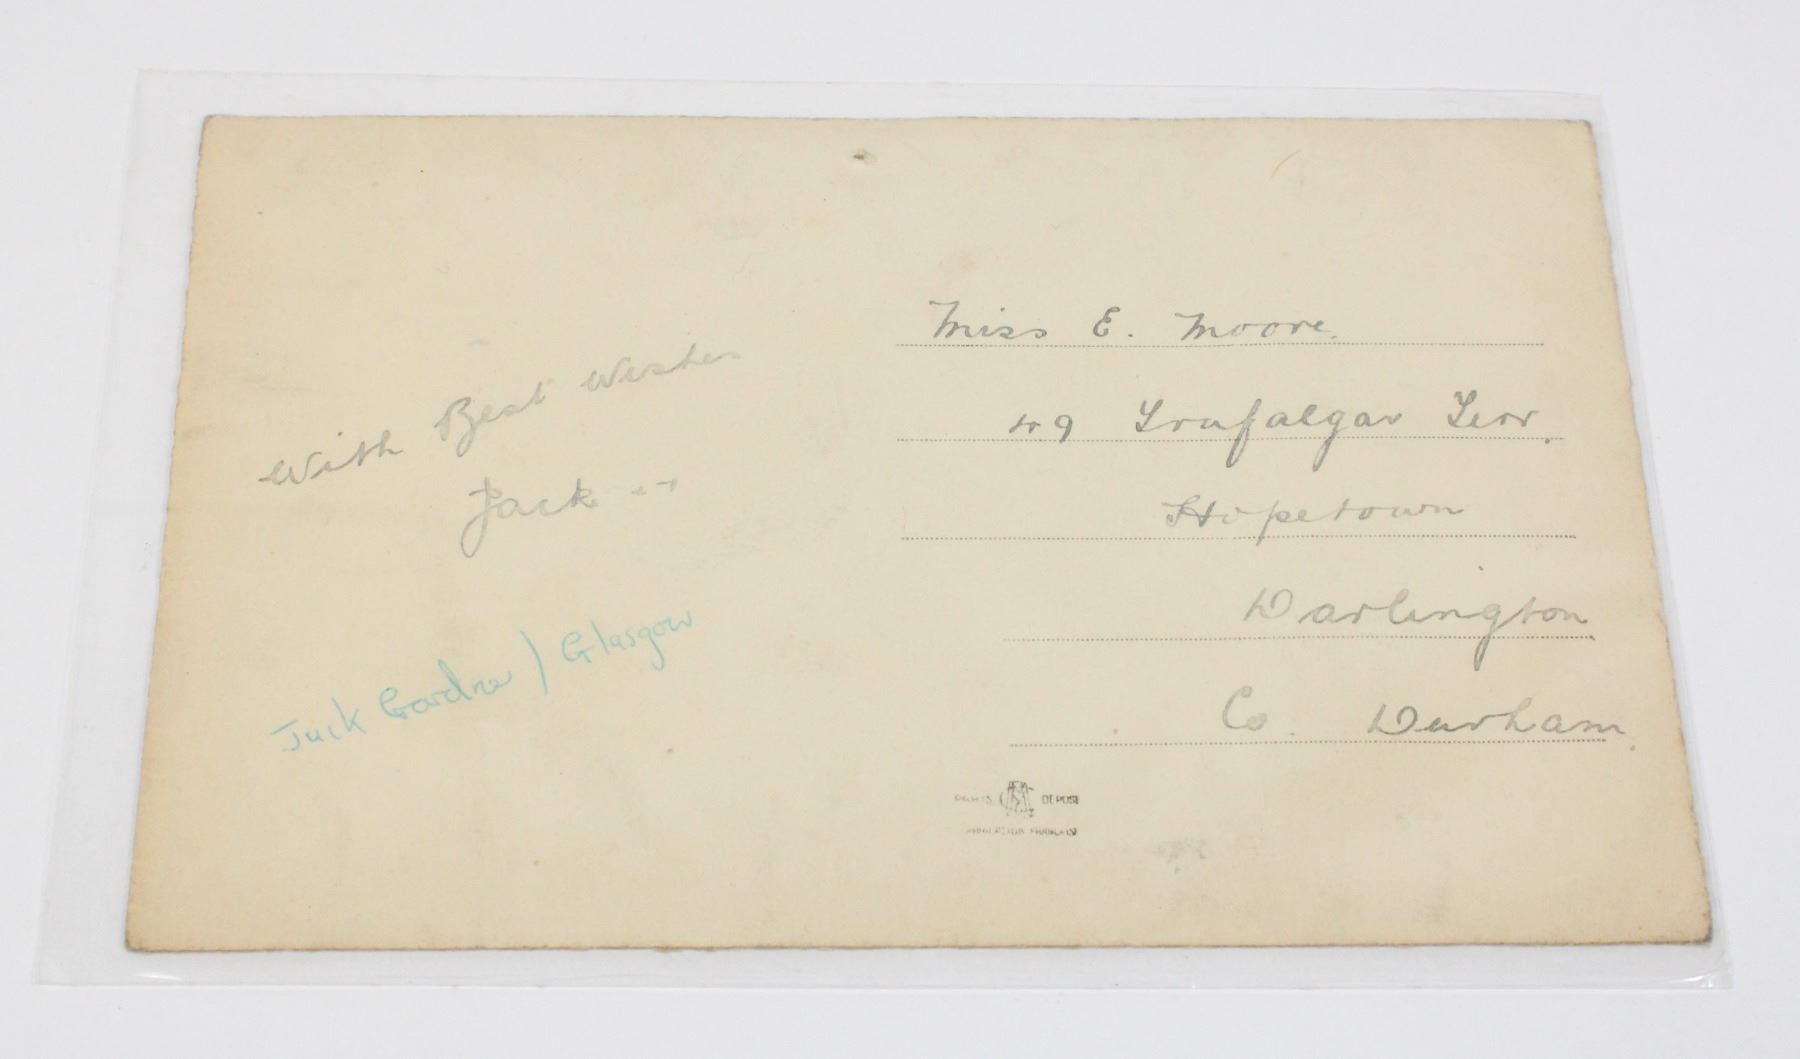 With Best Wishes
Jack
Jack Gardner / Glasgow
Miss E. Moore.
49 Trafalgar Terr.
Hopetown
Darlington
Co. Durham.
PARIS DEPOSE
FABRICATION FRANÇAISE